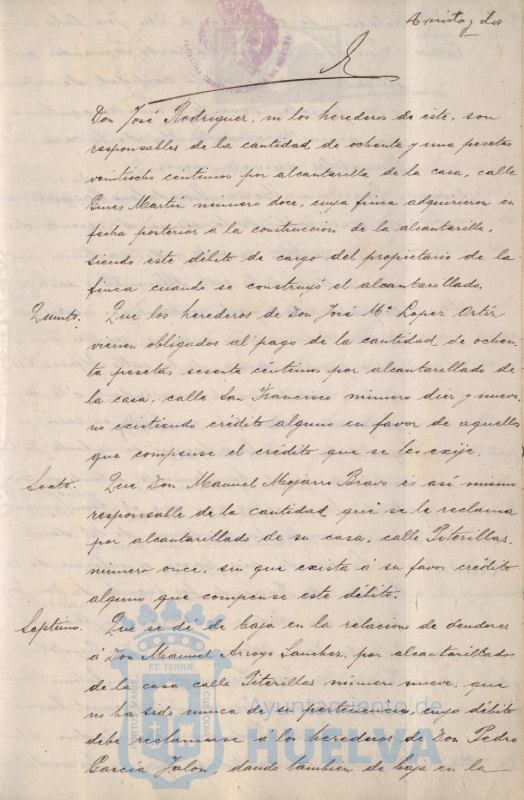 treinta y dos
Don José Rodriguez, ni los herederos de este, son
responsables de la cantidad de ochenta y una pesetas
veintiocho céntimos por alcantarilla de la casa, calle
Ginés Martín número doce, cuya finca adquirieron en
fecha posterior á la construccion de la alcantarilla,
siendo este débito de cargo del propietario de la
finca cuando se construyó el alcantarillado.
Quinto. Que los herederos de Don José Mª Lopez Ortiz
vienen obligados al pago de la cantidad de ochen-
ta pesetas sesenta céntimos por alcantarillado de
la casa, calle San Francisco número diez y nueve,
no existiendo crédito alguno en favor de aquellos
que compense el crédito que se les exije.
Sexto. Que Don Manuel Mojarro Bravo es así mismo
responsable de la cantidad que se le reclama
por alcantarillado de su casa, calle Piterillas,
número once, sin que exista á su favor crédito
alguno que compense este débito.
Septimo. Que se dé de baja en la relacion de deudores
á Don Manuel Arroyo Sanchez, por alcantarillado
de la casa calle Piterillas número nueve, que
no ha sido nunca de su pertenencia, cuyo débito
debe reclamarse á los herederos de Don Pedro
Garcia Jalon, dando tambien de baja en la
Ayuntamiento de
HUELVA